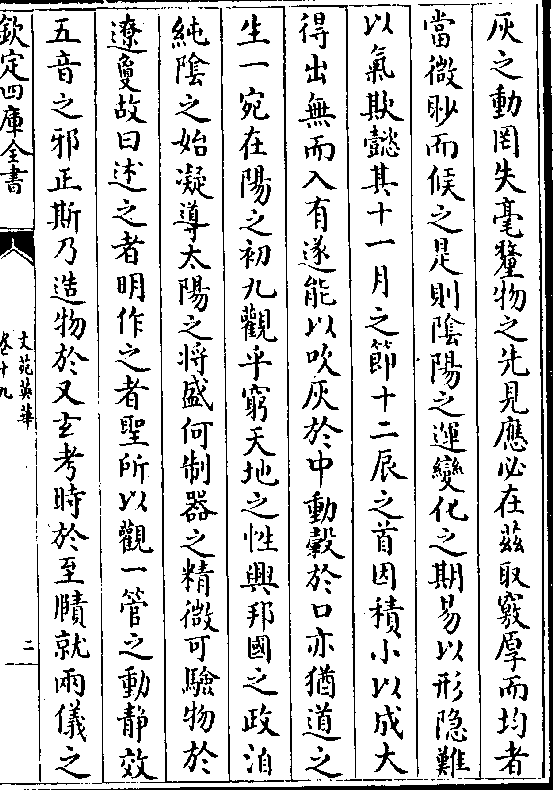 灰之動罔失毫釐物之先見應必在茲取竅厚而均者
當微眇而候之是則陰陽之運變化之期易以形隐難
以氣欺懿其十一月之節十二辰之首因積小以成大
得出無而入有遂能以吹灰於中動縠於口亦猶道之
生一宛在陽之初九觀乎窮天地之性興邦國之政洎
純陰之始凝導太陽之将盛何制器之精微可驗物於
遼敻故曰述之者明作之者聖所以觀一管之動静效
五音之邪正斯乃造物於又玄考時於至賾就兩儀之
欽定四庫全書
文苑英華
卷十九
二